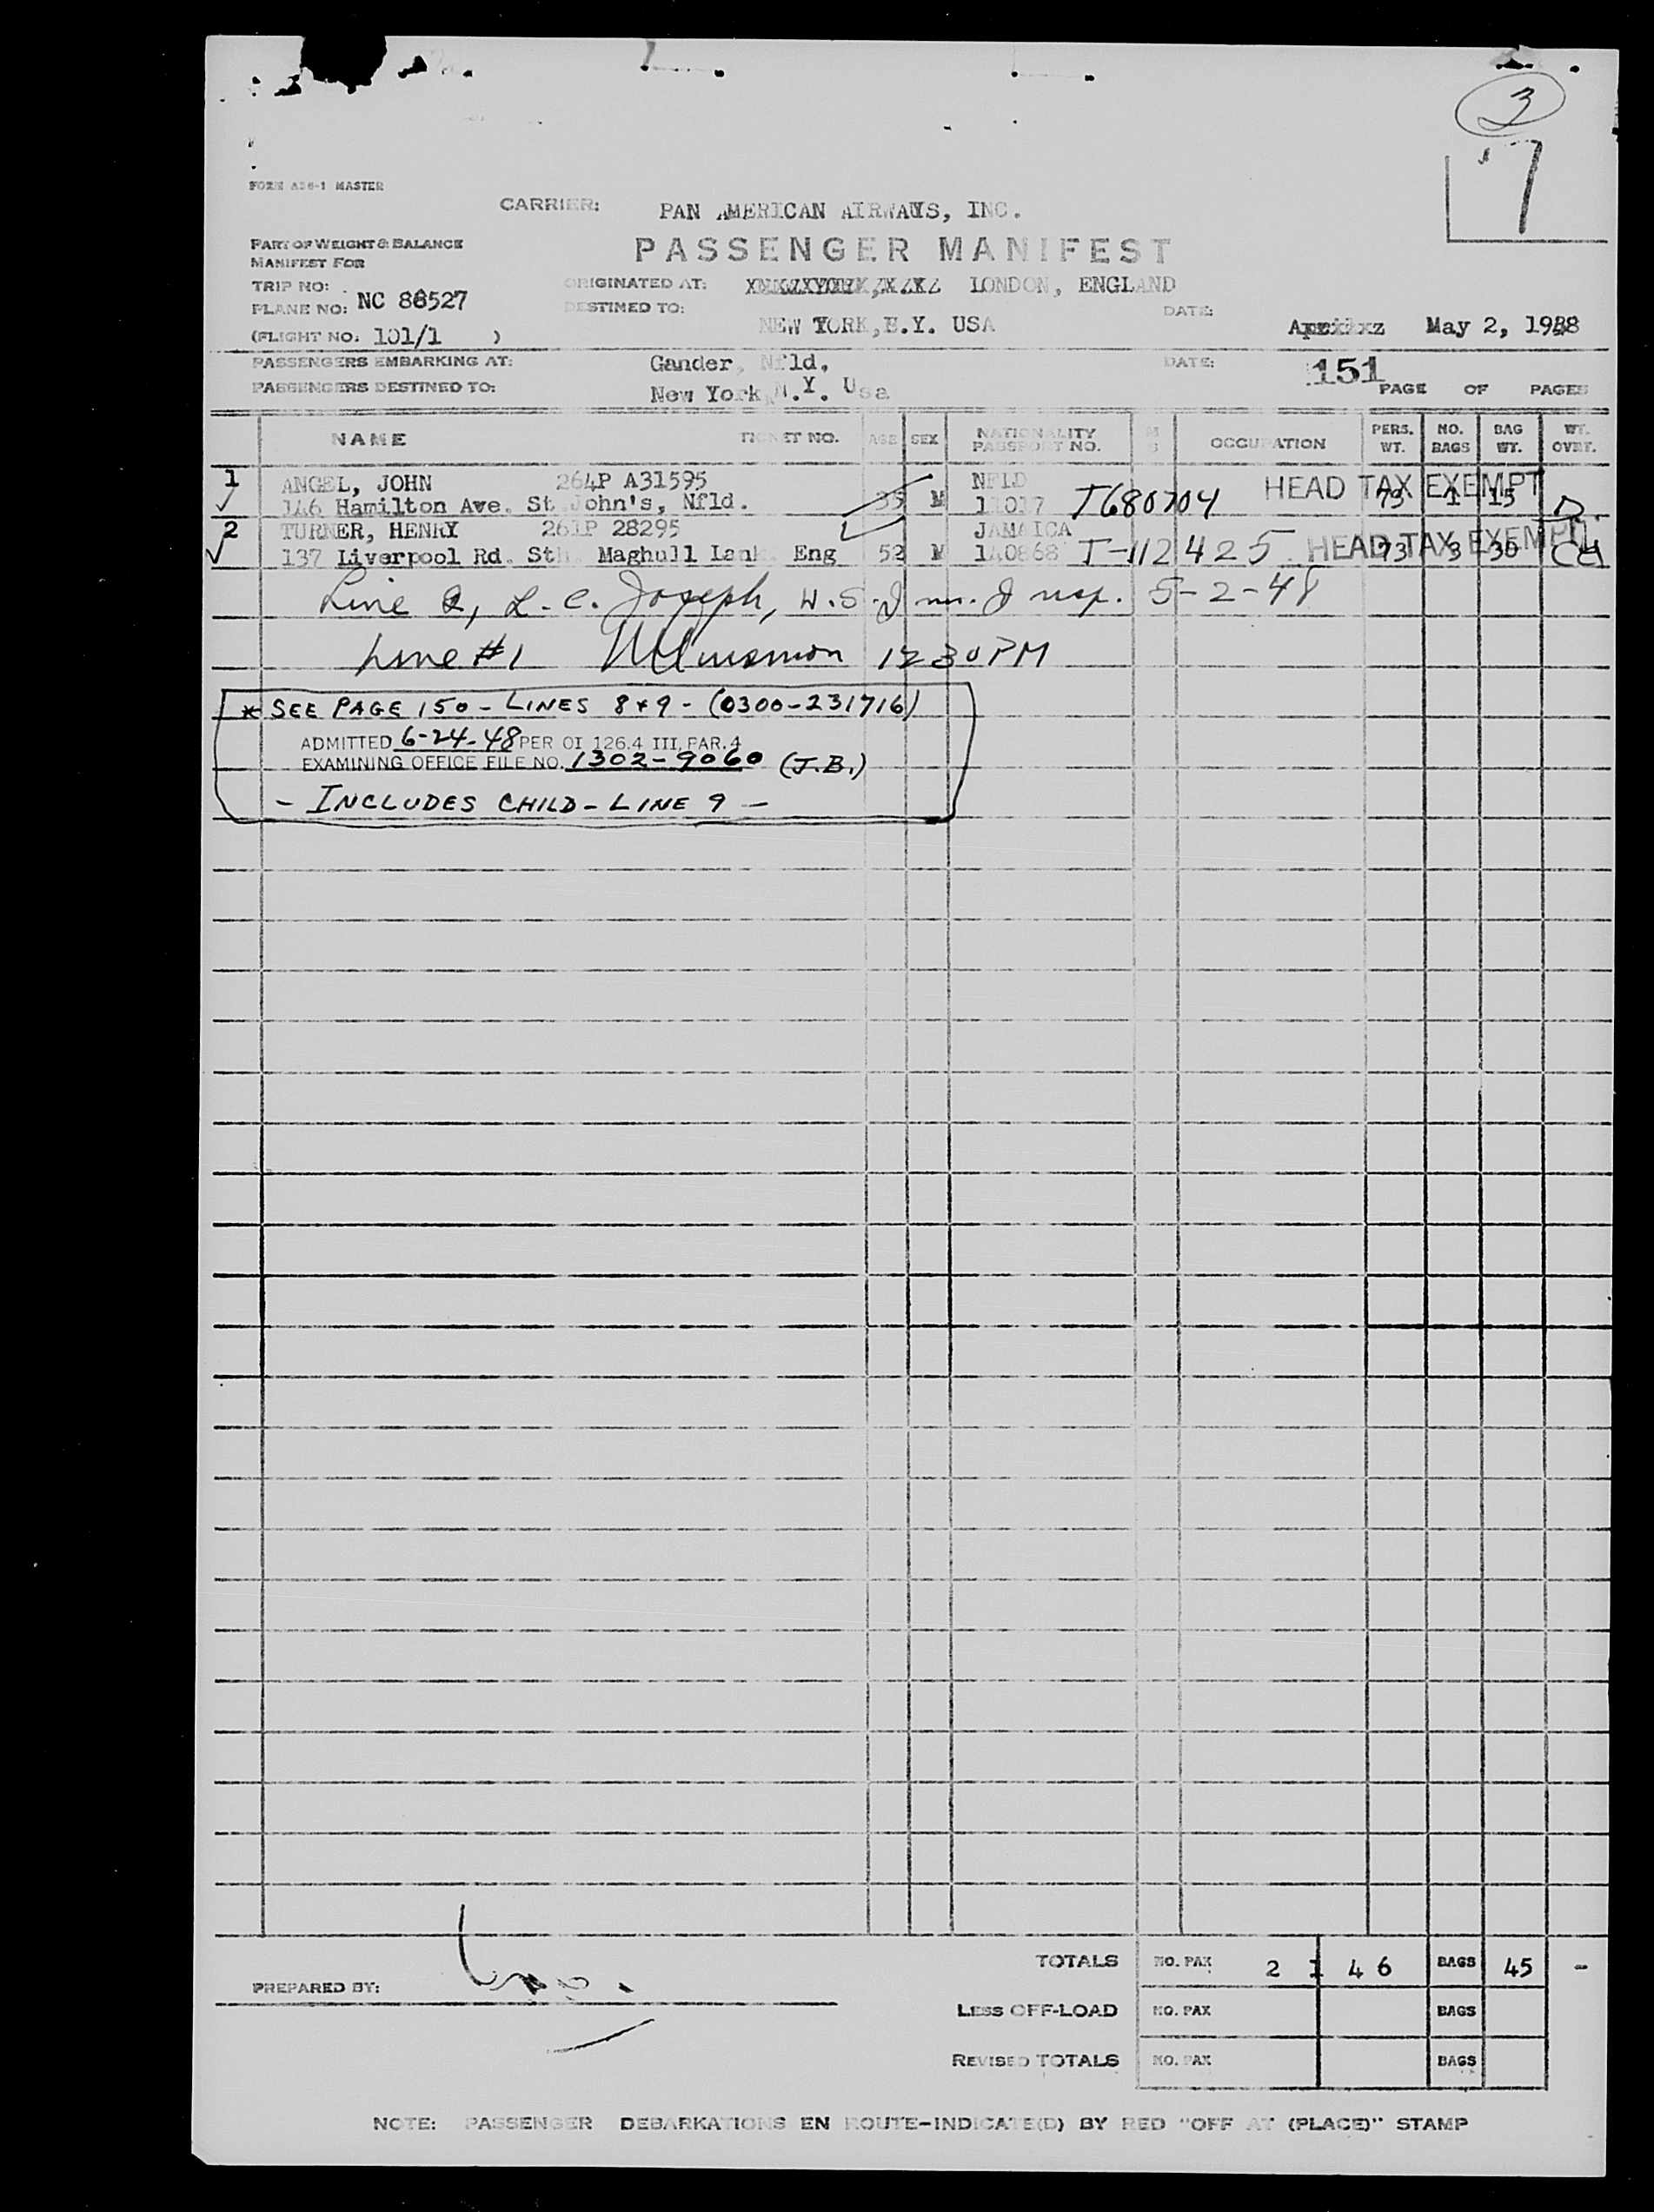 3
7
FORM A26-1 MASTER
CARRIER: PAN AMERICAN AIRWAYS, INC.
PART OF WEIGHT & BALANCE
MANIFEST FOR
PASSENGER MANIFEST
TRIP NO:
ORIGINATED AT: LONDON, ENGLAND
PLANE NO: NC 86527
DESTINED TO: NEW YORK, N.Y. USA
DATE: May 2, 1948
(FLIGHT NO: 101/1 )
PASSENGERS EMBARKING AT: Gander, Nfld.
DATE:
PASSENGERS DESTINED TO: New York, N.Y. Usa
151 PAGE OF PAGES
NAME TICKET NO. AGE SEX NATIONALITY PASSPORT NO. M S OCCUPATION PERS. WT. NO. BAGS BAG WT. WT. OVRT.
1 ANGEL, JOHN 264P A31595 NFLD HEAD TAX EXEMPT
146 Hamilton Ave. St John's, Nfld. 35 M 11017 T680704 73 1 15 D
2 TURNER, HENRY 261P 28295 JAMAICA
137 Liverpool Rd. Sth. Maghull Lank. Eng 52 M 1A0868 T-112425 HEAD TAX EXEMPT 73 3 30
Line 2, L.C. Joseph, U.S. Imm. Insp. 5-2-48
Line #1 1230PM
* SEE PAGE 150 - LINES 8 & 9 - (0300-231716)
ADMITTED 6-24-48 PER OI 126.4 III, PAR. 4
EXAMINING OFFICE FILE NO. 1302-9060 (J.B.)
- INCLUDES CHILD - LINE 9 -
TOTALS NO. PAX 2 146 BAGS 45 -
PREPARED BY:
LESS OFF-LOAD NO. PAX BAGS
REVISED TOTALS NO. PAX BAGS
NOTE: PASSENGER DEBARKATIONS EN ROUTE-INDICATE(D) BY RED "OFF AT (PLACE)" STAMP